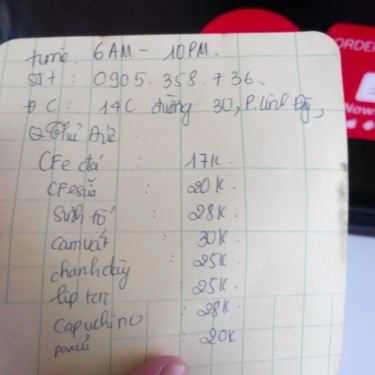 time. 6AM - 10PM.
SĐT : 0905.358.736.
ĐC : 14C đường 30, P. Linh Đg,
Q Thủ Đức
CFe đá : 17K.
CFe sữa : 20K.
Sinh tố : 28K.
cam vắt : 30K
chanh dây : 25K
lip ton : 25K
capuchino : 28K
: 20K
ORDER
Now